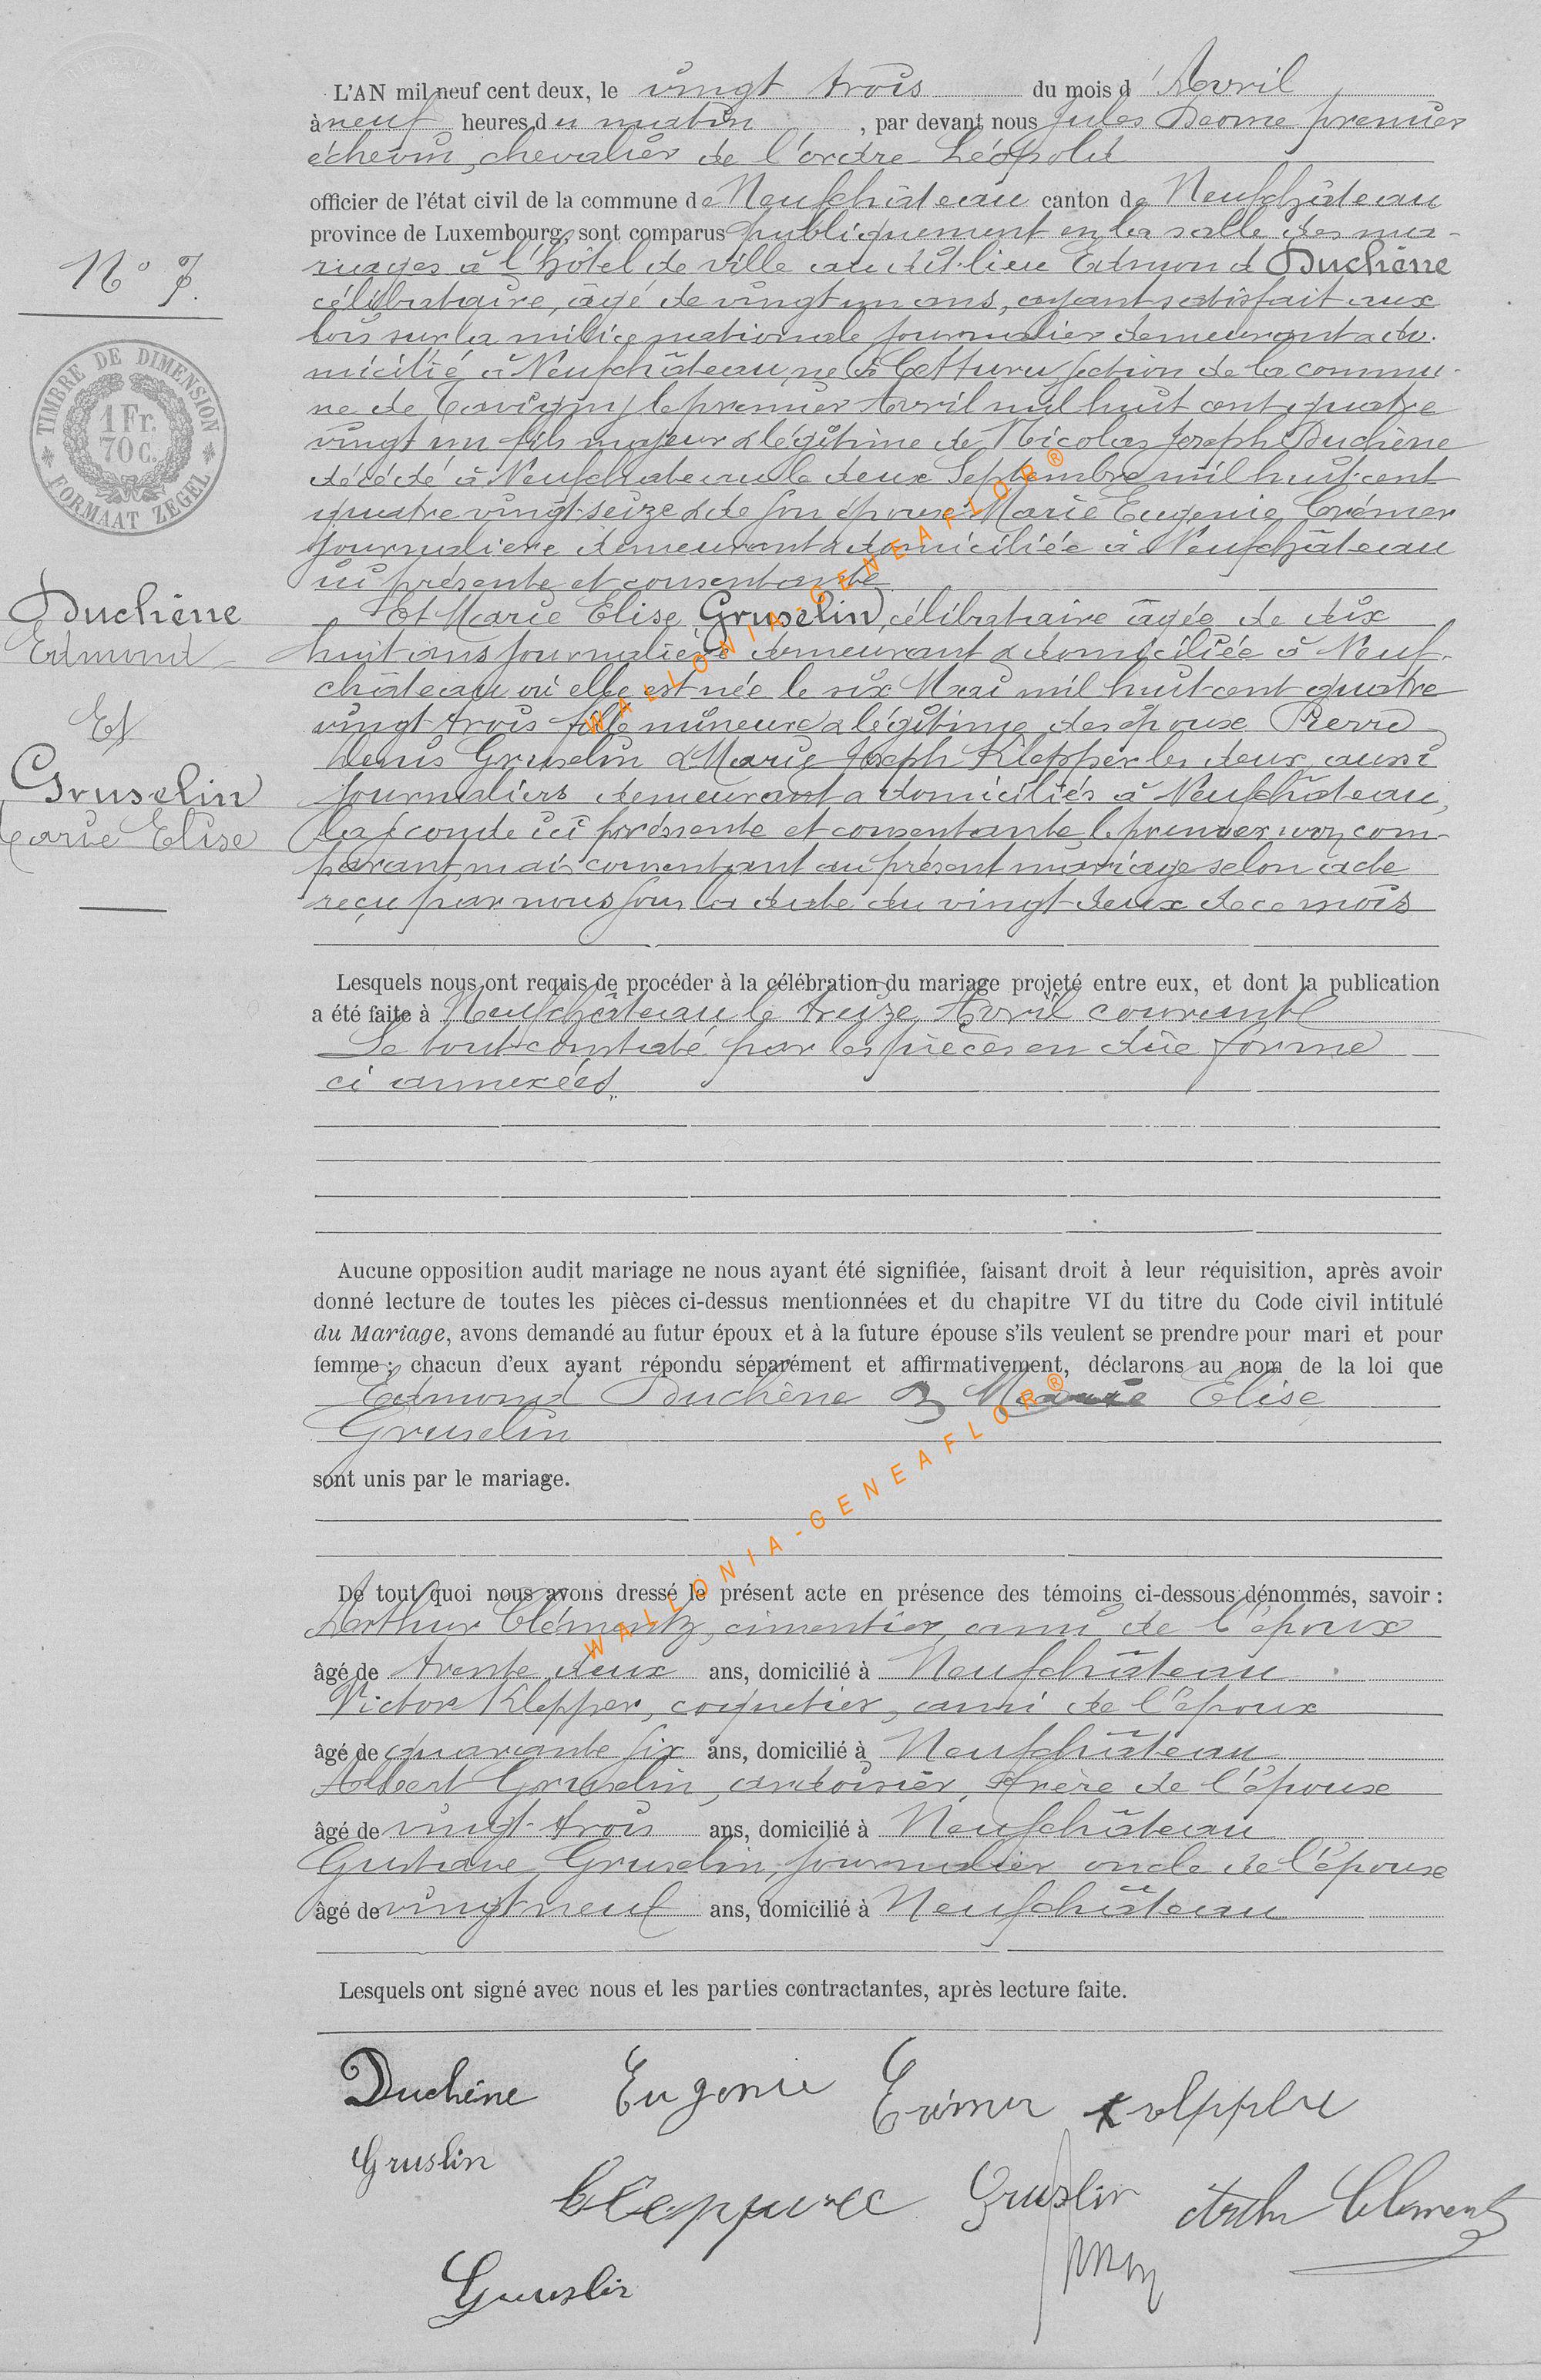 L'AN mil neuf cent deux, le vingt trois du mois d'Avril
à neuf heures du matin, par devant nous Jules Deome premier
échevin, chevalier de l'ordre Léopold
officier de l'état civil de la commune de Neufchâteau canton de Neufchâteau
province de Luxembourg, sont comparus publiquement en la salle des ma-
riages à l'hôtel de ville au dit lieu Edmond Duchêne
célibataire, âgé de vingt un ans, ayant satisfait aux
lois sur la milice nationale journalier demeurant & do-
micilié à Neufchâteau, né à Cetturu section de la commu-
ne de Tavigny le premier Avril mil huit cent quatre
vingt un fils majeur & légitime de Nicolas Joseph Duchêne
décédé à Neufchateau le deux Septembre mil huit cent
quatre vingt seize & de son épouse Marie Eugenie Crémer
journalière demeurant & domiciliée à Neufchâteau
ici présente et consentante
Et Marie Elise Gruselin, célibataire âgée de dix
huit ans journalière demeurant & domiciliée à Neuf-
château où elle est née le six Mai mil huit cent quatre
vingt trois fille mineure & légitime des époux Pierre
Denis Gruselin & Marie Joseph Klepper les deux aussi
journaliers demeurant & domiciliés à Neufchâteau,
la seconde ici présente et consentante, le premier non com-
parant mais consentant au présent mariage selon acte
reçu par nous sous la date du vingt deux de ce mois
N° 7.
TIMBRE DE DIMENSION
1 Fr.
70 C.
FORMAAT ZEGEL
Duchêne
Edmond
Et
Gruselin
Marie Elise
Lesquels nous ont requis de procéder à la célébration du mariage projeté entre eux, et dont la publication
a été faite à Neufchâteau le treize Avril courant
Le tout constaté par les pièces en due forme
ci annexées.
Aucune opposition audit mariage ne nous ayant été signifiée, faisant droit à leur réquisition, après avoir
donné lecture de toutes les pièces ci-dessus mentionnées et du chapitre VI du titre du Code civil intitulé
du Mariage, avons demandé au futur époux et à la future épouse s'ils veulent se prendre pour mari et pour
femme ; chacun d'eux ayant répondu séparément et affirmativement, déclarons au nom de la loi que
Edmond Duchêne & Marie Elise
Gruselin
sont unis par le mariage.
De tout quoi nous avons dressé le présent acte en présence des témoins ci-dessous dénommés, savoir :
Arthur Clémentz, cimentier, ami de l'époux
âgé de trente deux ans, domicilié à Neufchâteau
Victor Klepper, coquetier, ami de l'époux
âgé de quarante six ans, domicilié à Neufchâteau
Albert Gruselin, ardoisier, frère de l'épouse
âgé de vingt-trois ans, domicilié à Neufchâteau
Gustave Gruselin, journalier oncle de l'épouse
âgé de vingt neuf ans, domicilié à Neufchâteau
Lesquels ont signé avec nous et les parties contractantes, après lecture faite.
Duchêne Eugenie Crémer
Gruslin
Gruslin Arthur Clementz
Gruslin
WALLONIA-GENEAFLOR®
WALLONIA-GENEAFLOR®